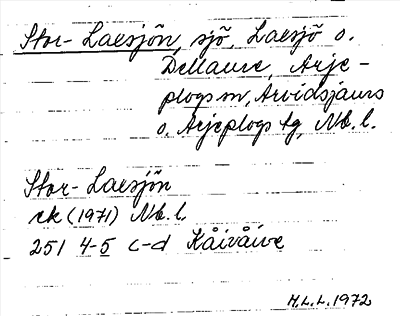 Stor-Laesjön, sjö, Laesjö o.
Dellaure, Arje-
plogs sn, Arvidsjaurs
o. Arjeplogs tg, Nb. l.
Stor-Laesjön
ek (1971) Nb. l.
251 4-5 c-d Kåivåive
M.L.L. 1972